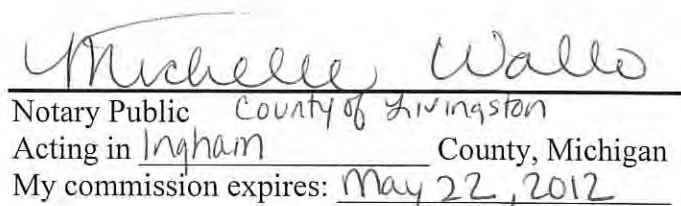 Michelle Wallo
Notary Public County of Livingston
Acting in Ingham County, Michigan
My commission expires: May 22, 2012